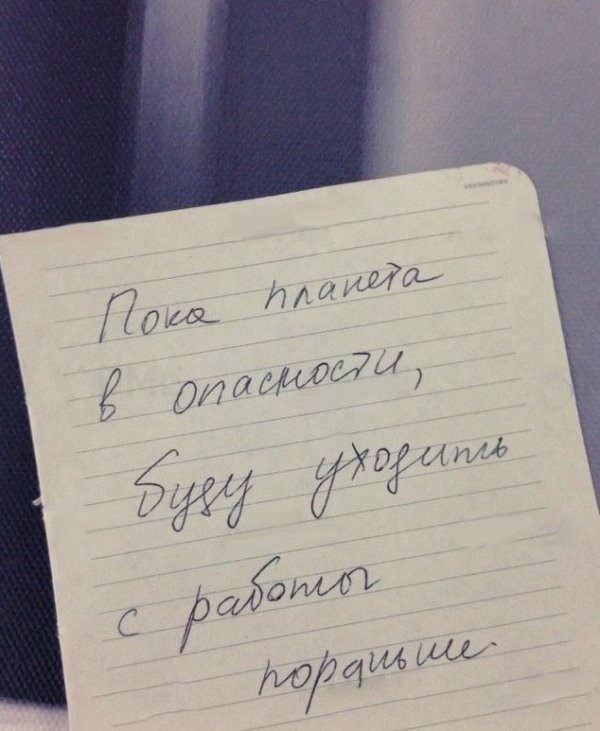 Пока планета
в опасности,
буду уходить
с работы
пораньше